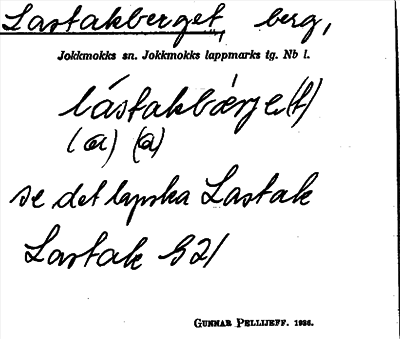 Lastakberget, berg,
Jokkmokks sn. Jokkmokks lappmarks tg. Nb l.
lástakbærje(t)
(a) (a)
se det lapska Lastak
Lastak
GUNNAR PELLIJEFF. 1936.